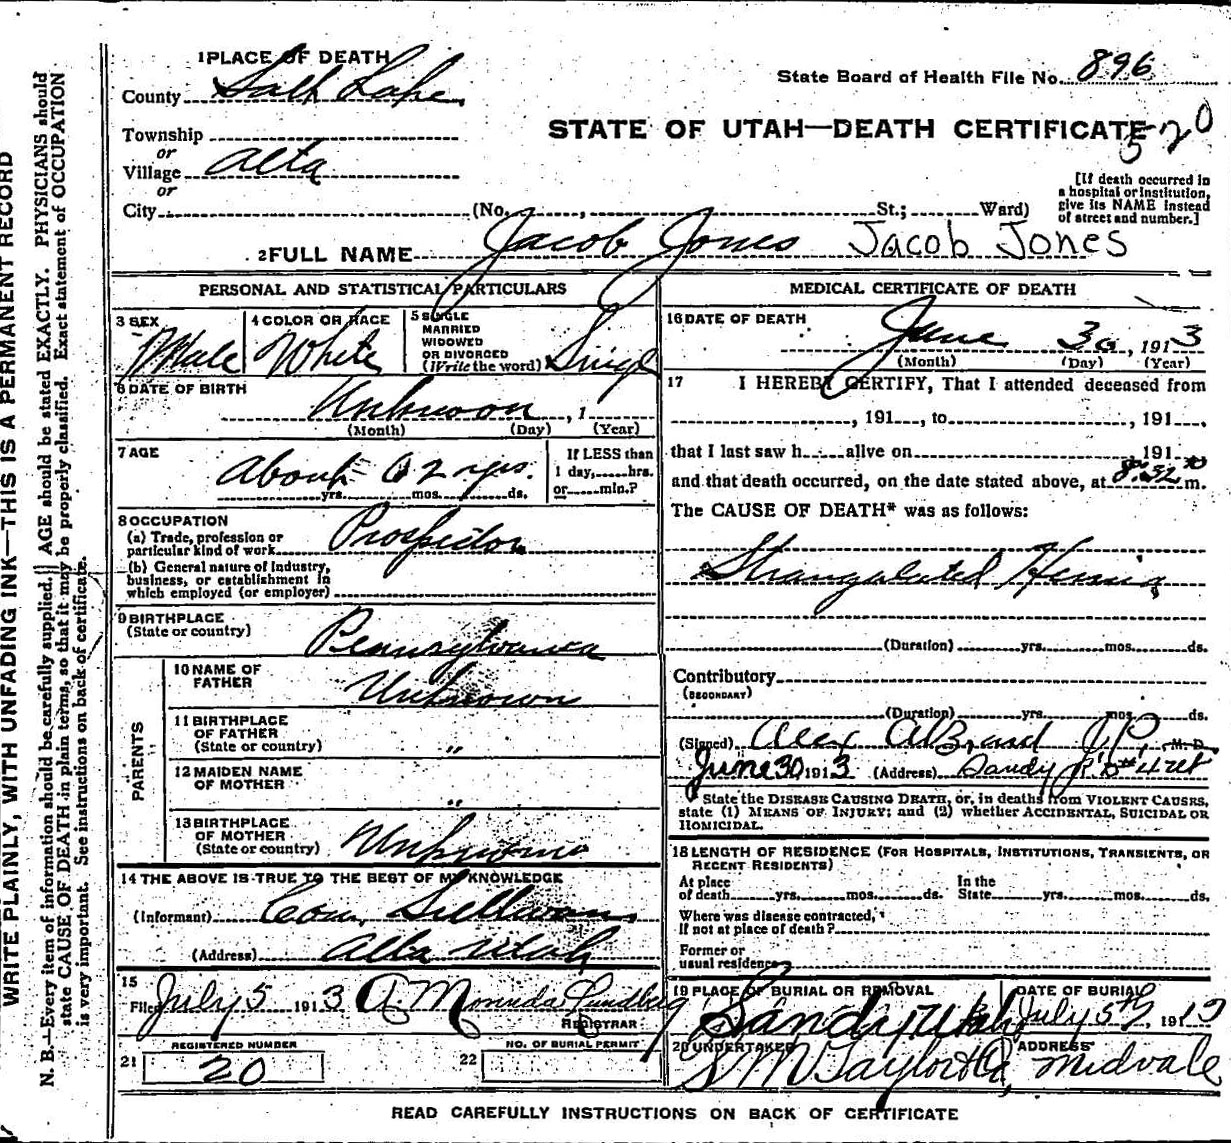 WRITE PLAINLY, WITH UNFADING INK—THIS IS A PERMANENT RECORD
N. B.—Every item of information should be carefully supplied. AGE should be stated EXACTLY. PHYSICIANS should
state CAUSE OF DEATH in plain terms, so that it may be properly classified. Exact statement of OCCUPATION
is very important. See instructions on back of certificate.
1 PLACE OF DEATH
County Salt Lake
State Board of Health File No. 896
Township
or
Village Alta
or
STATE OF UTAH—DEATH CERTIFICATE
520
[If death occurred in
a hospital or institution,
give its NAME instead
of street and number.]
City (No. , St.; Ward)
2 FULL NAME Jacob Jones Jacob Jones
PERSONAL AND STATISTICAL PARTICULARS
3 SEX
Male
4 COLOR OR RACE
White
5 SINGLE
MARRIED
WIDOWED
OR DIVORCED
(Write the word) Single
6 DATE OF BIRTH
Unknown , 1
(Month) (Day) (Year)
7 AGE
About 62 yrs.
yrs. mos. ds.
If LESS than
1 day, hrs.
or min.?
8 OCCUPATION
(a) Trade, profession or
particular kind of work Prospector
(b) General nature of industry,
business, or establishment in
which employed (or employer)
9 BIRTHPLACE
(State or country)
Pennsylvania
PARENTS
10 NAME OF
FATHER
Unknown
11 BIRTHPLACE
OF FATHER
(State or country) "
12 MAIDEN NAME
OF MOTHER
"
13 BIRTHPLACE
OF MOTHER
(State or country) Unknown
14 THE ABOVE IS TRUE TO THE BEST OF MY KNOWLEDGE
(Informant) Con Sullivan
(Address) Alta Utah
15
Filed July 5 1913 A. Lundberg
REGISTRAR
21 REGISTERED NUMBER
20
22 NO. OF BURIAL PERMIT
MEDICAL CERTIFICATE OF DEATH
16 DATE OF DEATH
June 30, 1913
(Month) (Day) (Year)
17 I HEREBY CERTIFY, That I attended deceased from
, 191 , to , 191 ,
that I last saw h alive on , 191 ,
and that death occurred, on the date stated above, at m.
The CAUSE OF DEATH* was as follows:
Strangulated Hernia
(Duration) yrs. mos. ds.
Contributory
(SECONDARY)
(Duration) yrs. mos. ds.
(Signed) Alex J.P., M. D.
June 30 1913 (Address) Sandy
* State the DISEASE CAUSING DEATH, or, in deaths from VIOLENT CAUSES,
state (1) MEANS OF INJURY; and (2) whether ACCIDENTAL, SUICIDAL OR
HOMICIDAL.
18 LENGTH OF RESIDENCE (FOR HOSPITALS, INSTITUTIONS, TRANSIENTS, OR
RECENT RESIDENTS)
At place
of death yrs. mos. ds.
In the
State yrs. mos. ds.
Where was disease contracted,
If not at place of death?
Former or
usual residence
19 PLACE OF BURIAL OR REMOVAL
Sandy Utah
DATE OF BURIAL
July 5th, 1913
20 UNDERTAKER
Taylor & Co,
ADDRESS
Midvale
READ CAREFULLY INSTRUCTIONS ON BACK OF CERTIFICATE